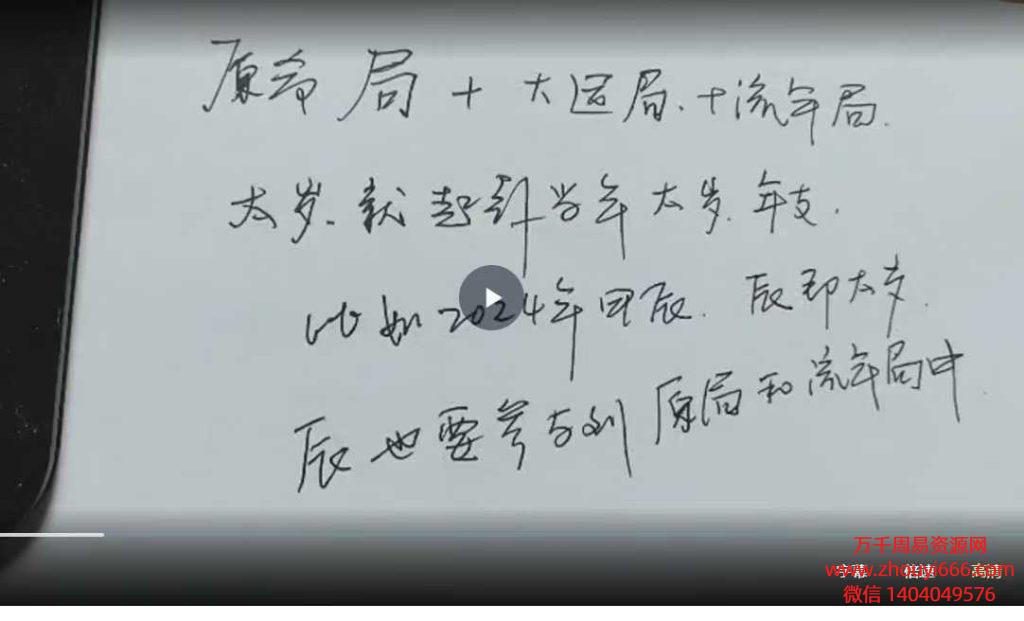 原命局+大运局.+流年局.
太岁.就起到当年太岁.年支.
比如2024年甲辰.辰即太岁.
辰也要参与到原局和流年局中.
万千周易资源网
字幕 倍速 高清
微信 1404049576